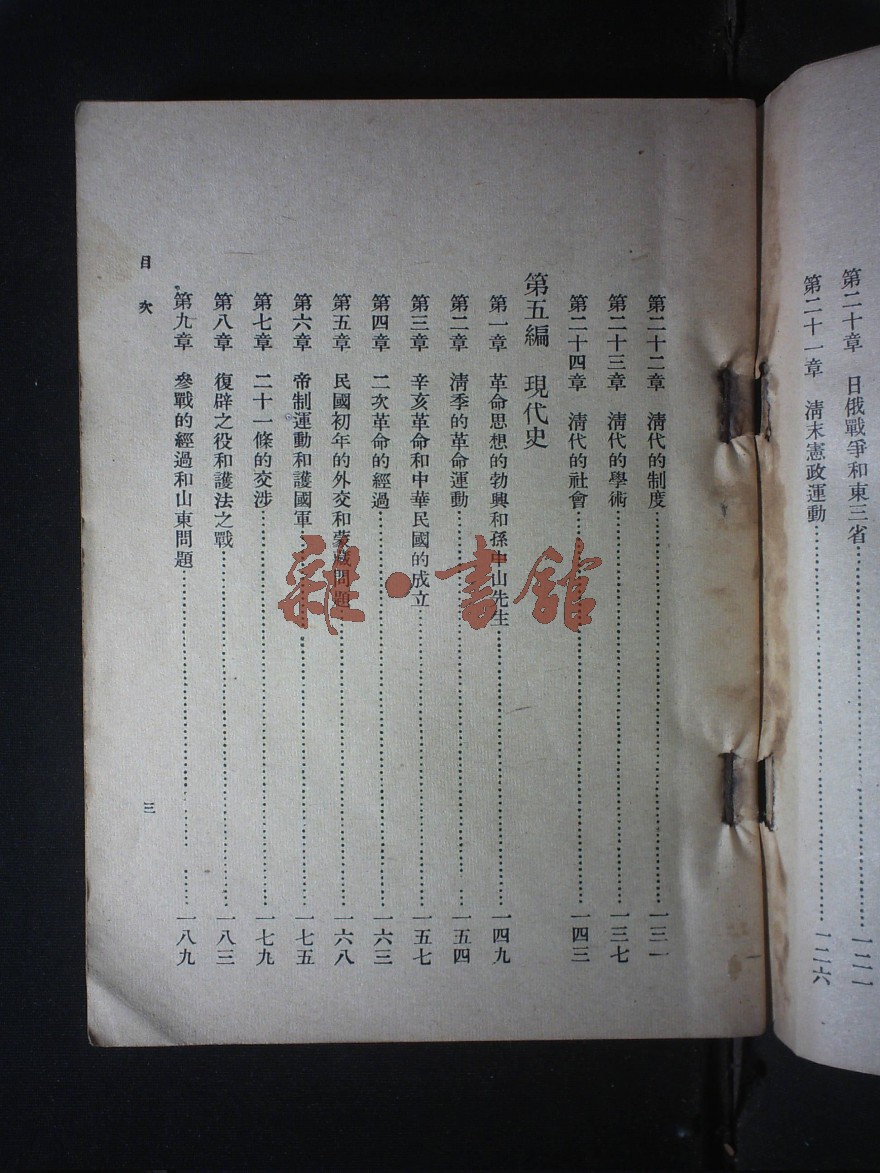 第二十章 日俄戰爭和東三省……一二一
第二十一章 清末憲政運動……一二六
第二十二章 清代的制度……一三一
第二十三章 清代的學術……一三七
第二十四章 清代的社會……一四三
第五編 現代史
第一章 革命思想的勃興和孫中山先生……一四九
第二章 清季的革命運動……一五四
第三章 辛亥革命和中華民國的成立……一五七
第四章 二次革命的經過……一六三
第五章 民國初年的外交和蒙藏問題……一六八
第六章 帝制運動和護國軍……一七五
第七章 二十一條的交涉……一七九
第八章 復辟之役和護法之戰……一八三
第九章 參戰的經過和山東問題……一八九
目次
三
雜·書館